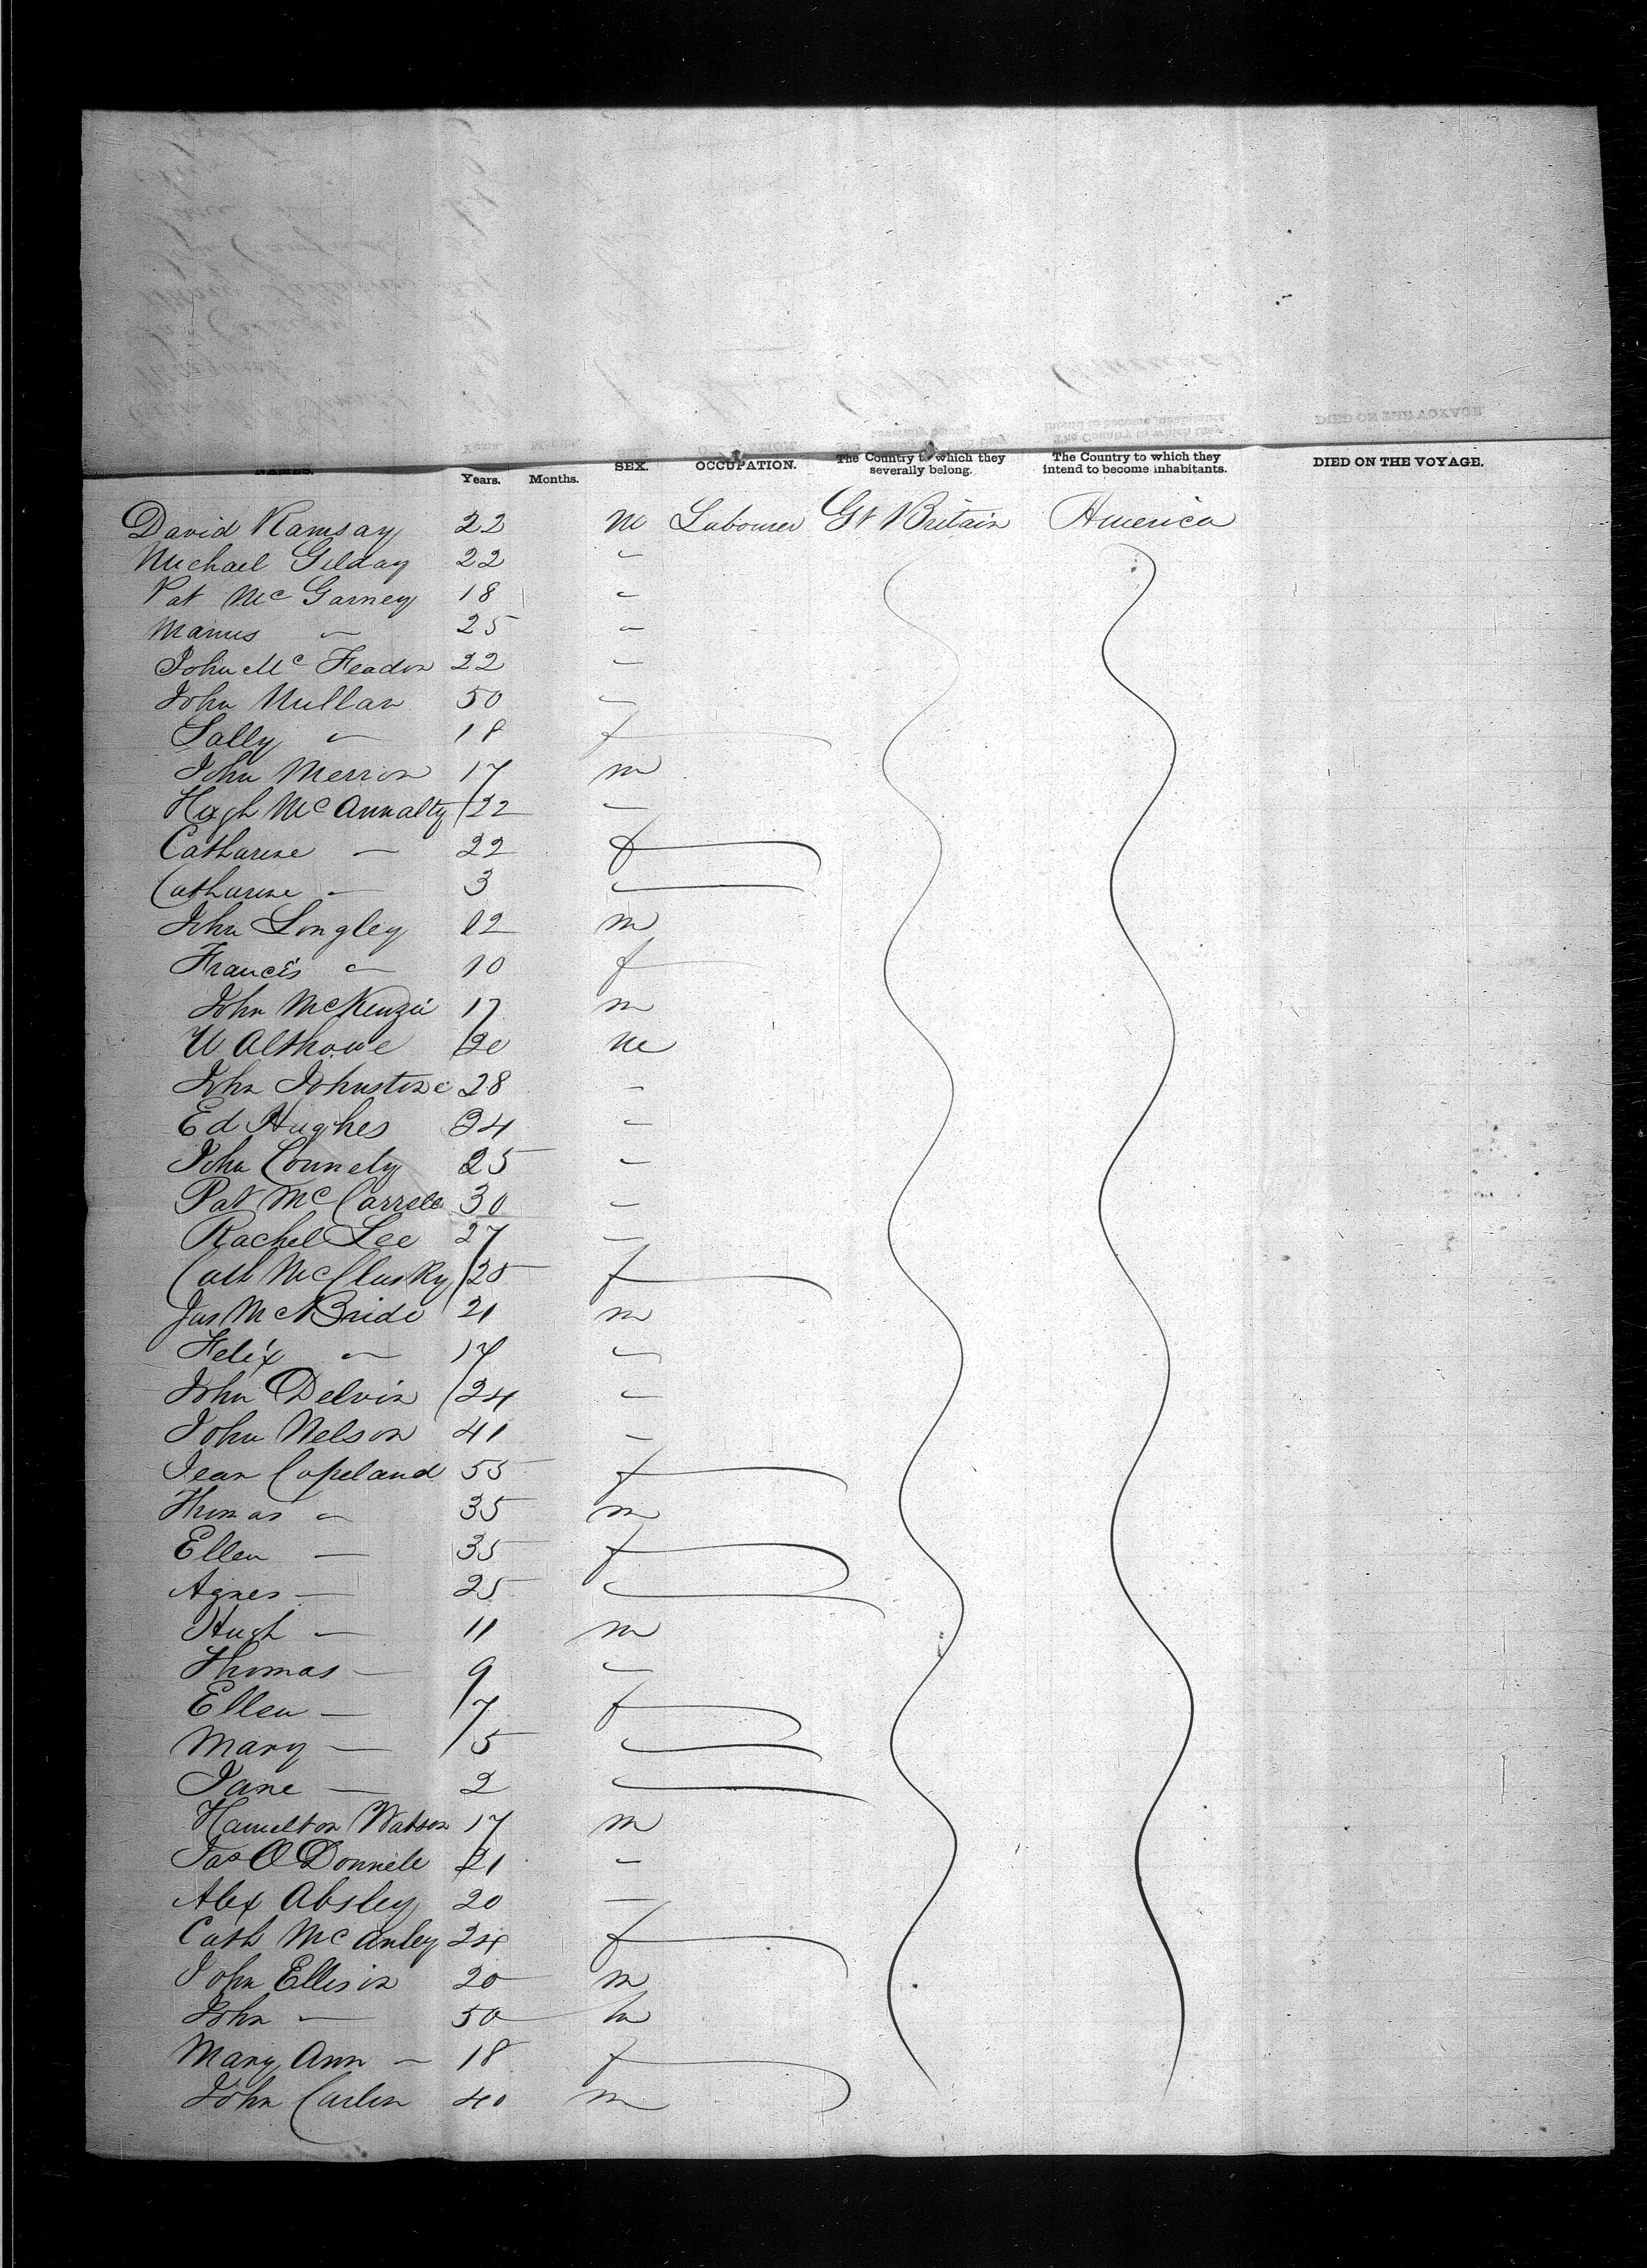 NAMES. Years. Months. SEX. OCCUPATION. The Country to which they severally belong. The Country to which they intend to become inhabitants. DIED ON THE VOYAGE.
David Ramsay 22 m Labourer Gt Britain America
Michael Gilday 22 "
Pat McGarney 18 "
Manus " 25 "
John McFeadon 22 "
John Mullan 50 "
Sally " 18 f
John Merrin 17 m
Hugh McAnnalty 22 "
Catharine " 22 f
Catharine " 3 "
John Longley 12 m
Francis " 10 f
John McKenzie 17 m
W Althowe 20 m
John Johnstone 28 "
Ed Hughes 24 "
John Connely 25 "
Pat McCarrell 30 "
Rachel Lee 27 "
Cath McClusky 25 f
Jas McBride 21 m
Felix " 17 "
John Delvin 24 "
John Nelson 41 "
Jean Copeland 55 f
Thomas " 35 m
Ellen " 35 f
Agnes " 25 "
Hugh " 11 m
Thomas " 9 "
Ellen " 7 f
Mary " 5 "
Jane " 2 "
Hamelton Watson 17 m
Jas O Donnell 21 "
Alex Absley 20 "
Cath McAnley 24 f
John Ellison 20 m
John " 50 m
Mary Ann " 18 f
John Carlin 40 m